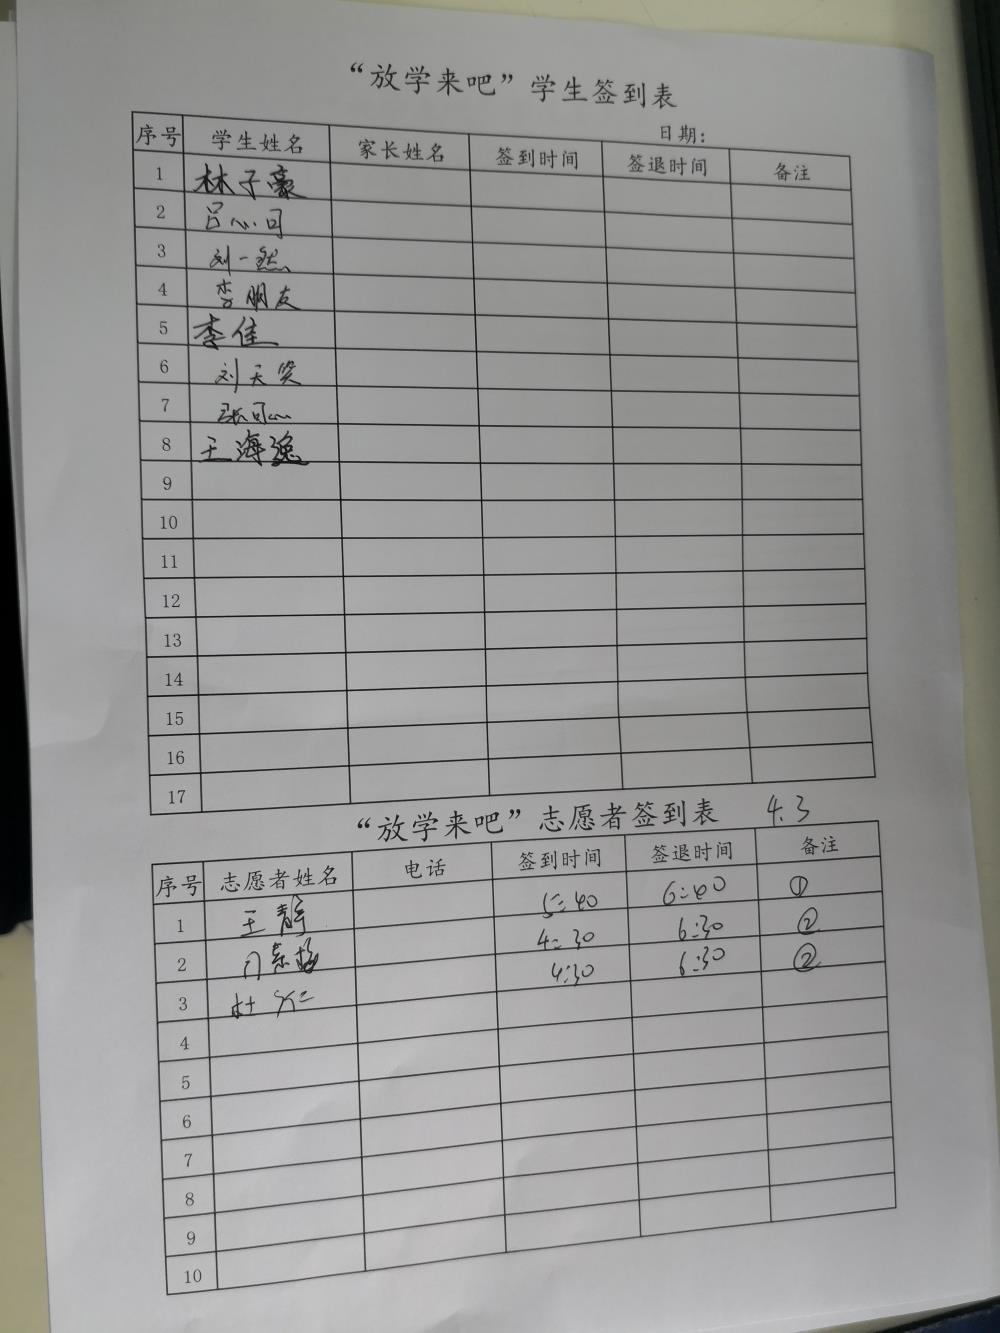 “放学来吧”学生签到表
日期:
序号 学生姓名 家长姓名 签到时间 签退时间 备注
1 林子豪
2 吕心可
3 刘一然
4 李朋友
5 李佳
6 刘天笑
7 张可心
8 王海逸
9
10
11
12
13
14
15
16
17
“放学来吧”志愿者签到表 4.3
序号 志愿者姓名 电话 签到时间 签退时间 备注
1 王静 5:40 6:40 ①
2 4:30 6:30 ②
3 杜 4:30 6:30 ②
4
5
6
7
8
9
10